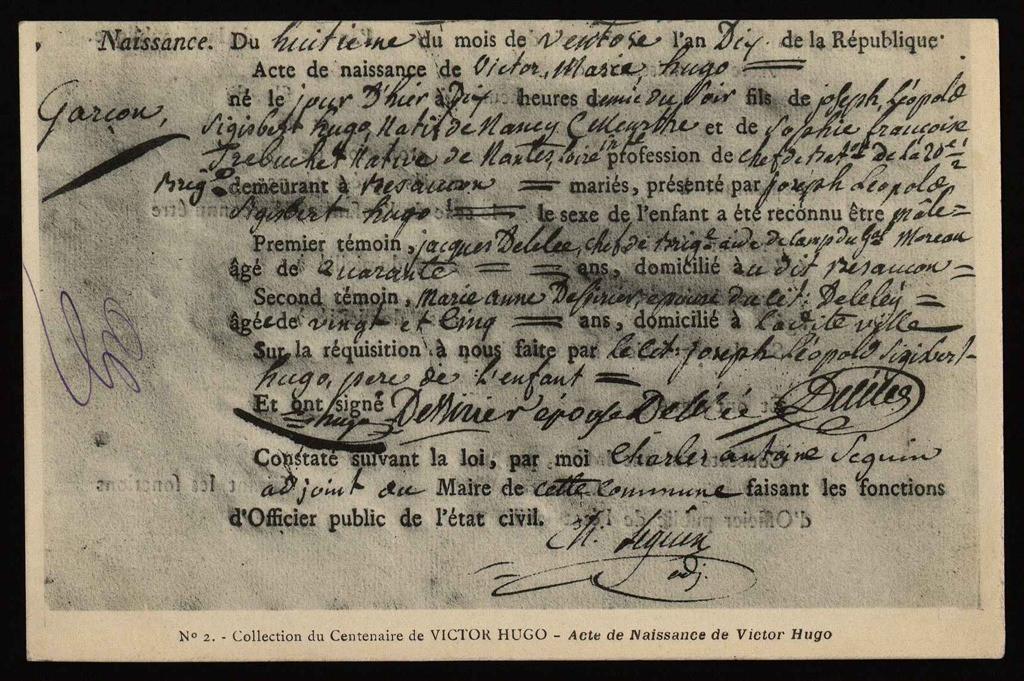 Naissance. Du huitieme du mois de Ventose l'an Dix de la République
Acte de naissance de Victor, Marie, hugo
Garçon,
né le jour D'hier à Dix heures demie du soir fils de joseph, Léopold
Sigisbert hugo, Natif de Nancy (Meurthe et de Sophie françoise
Trebuchet Native de Nantes, Loire inf.re profession de chef de Bat.on de la 20e
Brig.e demeurant à Besancon mariés, présenté par joseph Léopold
Sigisbert hugo le sexe de l'enfant a été reconnu être mâle
Premier témoin, jacques Delelee, chef de Brig.e aide de camp du G.al Moreau
âgé de quarante ans, domicilié au dit Besancon
Second témoin, Marie anne Dessirier, epouse du cit. Delelée
âgée de vingt et cinq ans, domicilié à laditte ville
Sur la réquisition à nous faite par le cit. joseph Léopold Sigisbert
hugo, pere de l'enfant
Et ont signé Dessirier épouse Delelée Delélée
hugo
Constaté suivant la loi, par moi Charles antoine Seguin
adjoint au Maire de cette commune faisant les fonctions
d'Officier public de l'état civil.
Seguin
adj.
No 2. - Collection du Centenaire de VICTOR HUGO - Acte de Naissance de Victor Hugo